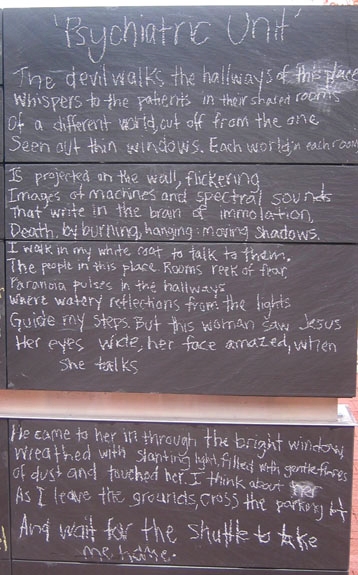 'Psychiatric Unit'
The devil walks the hallways of this place
Whispers to the patients in their shared rooms
Of a different world, cut off from the one
Seen out thin windows. Each world, in each room
Is projected on the wall, flickering
Images of machines and spectral sounds
That write in the brain of immolation,
Death, by burning, hanging: moving shadows.
I walk in my white coat to talk to them.
The people in this place. Rooms reek of fear
Paranoia pulses in the hallways
Where watery reflections from the lights
Guide my steps. But this woman saw Jesus
Her eyes wide, her face amazed, when
She talks
He came to her in through the bright window,
Wreathed with slanting light, filled with gentle flames
of dust and touched her. I think about her
As I leave the grounds, cross the parking lot
And wait for the shuttle to take
me home.